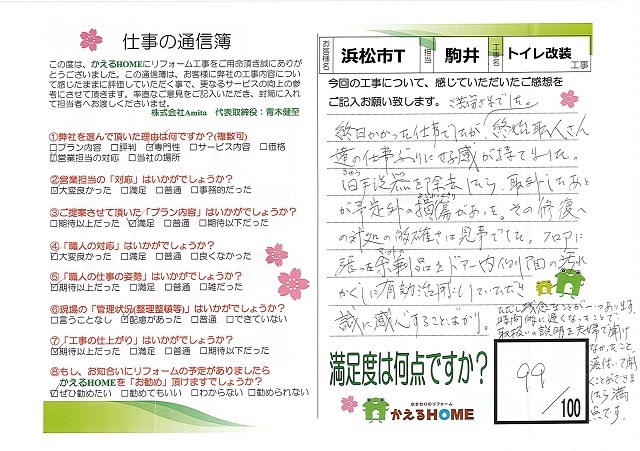 仕事の通信簿
この度は、かえるHOMEにリフォーム工事をご用命頂き誠にありが
とうございました。この通信簿は、お客様に弊社の工事内容について
感じたままに評価していただく事で、更なるサービスの向上の参
考にさせて頂きます。率直なご意見をご記入いただき、封筒に入れ
て担当者へお渡しくださいませ。
株式会社Amita 代表取締役:青木健至
①弊社を選んで頂いた理由は何ですか?(複数可)
□プラン内容 □評判 ☑専門性 □サービス内容 □価格
☑営業担当の対応 □当社の場所
②営業担当の「対応」はいかがでしたか?
☑大変良かった □満足 □普通 □事務的だった
③ご提案させて頂いた「プラン内容」はいかがでしたか?
□期待以上だった ☑満足 □普通 □期待以下だった
④「職人の対応」はいかがでしょうか?
☑大変良かった □満足 □普通 □良くなかった
⑤「職人の仕事の姿勢」はいかがでしょうか?
☑期待以上だった □満足 □普通 □雑だった
⑥現場の「管理状況(整理整頓等)」はいかがでしょうか?
□言うことなし ☑配慮があった □普通 □できていない
⑦「工事の仕上がり」はいかがでしょうか?
☑期待以上だった □満足 □普通 □期待以下だった
⑧もし、お知合いにリフォームの予定がありましたら
かえるHOMEを「お勧め」頂けますでしょうか?
☑ぜひ勧めたい □勧めてもいい □わからない □勧められない
お客様名 浜松市T 担当 駒井 工事名 トイレ改装 工事
今回の工事について、感じていただいたご感想を
ご記入お願い致します。
終日かかった仕事でしたが、終始職人さん
達の仕事ぶりに好感が持てました。
旧手洗器を除去したら、取外したあと
が予定外の損傷があった。その修復へ
の対処の的確さは見事でした。フロアに
張った余剰品をドアー内側面の汚れ
かくしに有効活用していただき
誠に感心することばかり。
ただし残念なことが一つあります。
時間的に遅くなったことで
取扱い説明を夫婦で聞け
なかったこと。
落付いて聞
くことができま
したら満
点です。
満足度は何点ですか?
99
/100
水まわりのリフォーム
かえるHOME